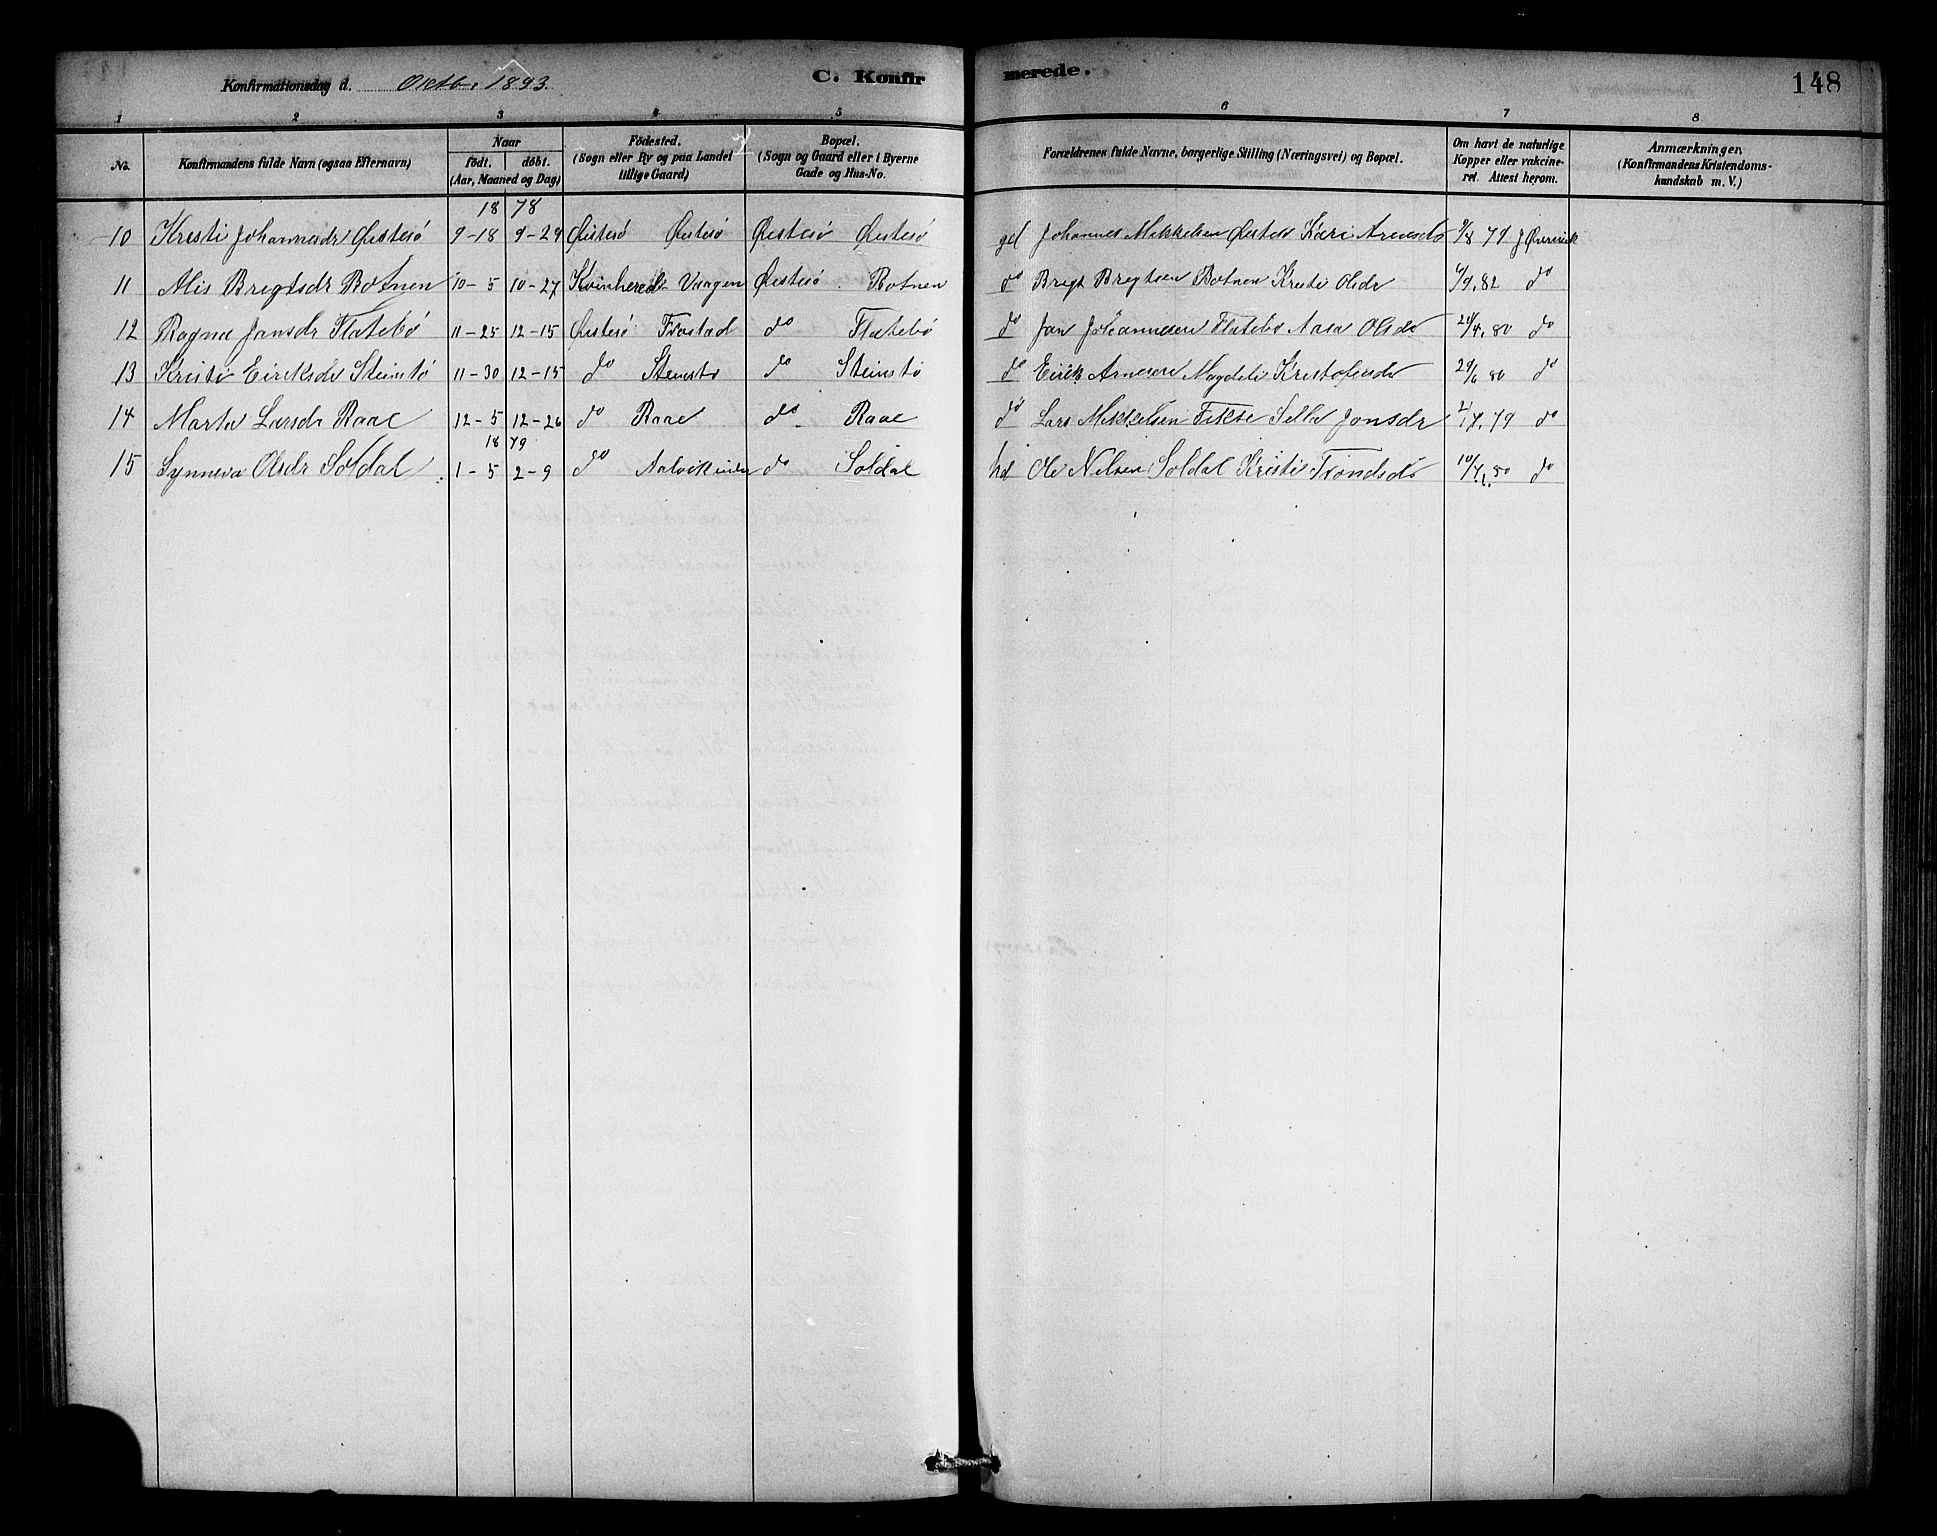 Konfirmationsdag d. Oktb. 1893. C. Konfirmerede. 148
1 2 3 4 5 6 7 8
No. Konfirmandens fulde Navn (ogsaa Efternavn) Naar födt. döbt. (Aar, Maaned og Dag) Födested. (Sogn eller By og paa Landet tillige Gaard) Bopæl. (Sogn og Gaard eller i Byerne Gade og Hus-No. Forældrenes fulde Navne, borgerlige Stilling (Næringsvei) og Bopæl. Om havt de naturlige Kopper eller vakcineret. Attest herom. Anmærkninger. (Konfirmandens Kristendomskundskab m. V.)
18 78
10 Kristi Johannesdr Øistesö 9-18 9-29 Øistesö Øistesö Øistesö Øistesö gd Johannes Mikkelsen Øistesö Kari Arnesdr 9/8 79 J
11 Alis Brigtsdr Botnen 10-5 10-27 Kvinhered Vaagen Øistesö Botnen do Brigt Brigtsen Botnen Kristi Olsdr 6/9.82 do
12 Ragna Jansdr Flatebö 11-25 12-15 Øistesö do Flatebö do Jan Johannesen Flatebö Aasa Olsdr 80 do
13 Kristi Eiriksdr Steinstö 11-30 12-15 do Steinstö do Steinstö do Eirik Arnesen Magdeli Kristofersdr 29/6 80 do
14 Marta Larsdr Raae 12-5 12-26 do Raae do Raae do Lars Mikkelsen Fikse Sella Jonsdr 79 do
18 79
15 Synneva Olsdr Soldal 1-5 2-9 do Aalvik do Soldal hd Ole Nilsen Soldal Kristi Trondsdr 80 do